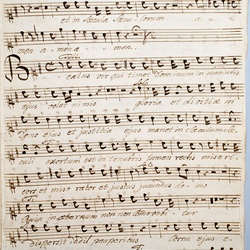 et in sæcula sæculorum a
men a men a men.
Beatus vir qui timet Dominum in mandatis
ejus volet nimis gloria et divitiæ in
Domo ejus et justitia ejus manet in sæculum sæ
culi exortum est in tenebris lumen rectis miseri
cors et mise rator et justus jucundus homo
quia in æternum non commovebitur
dispersit dedit pauperibus Cornu ejus e